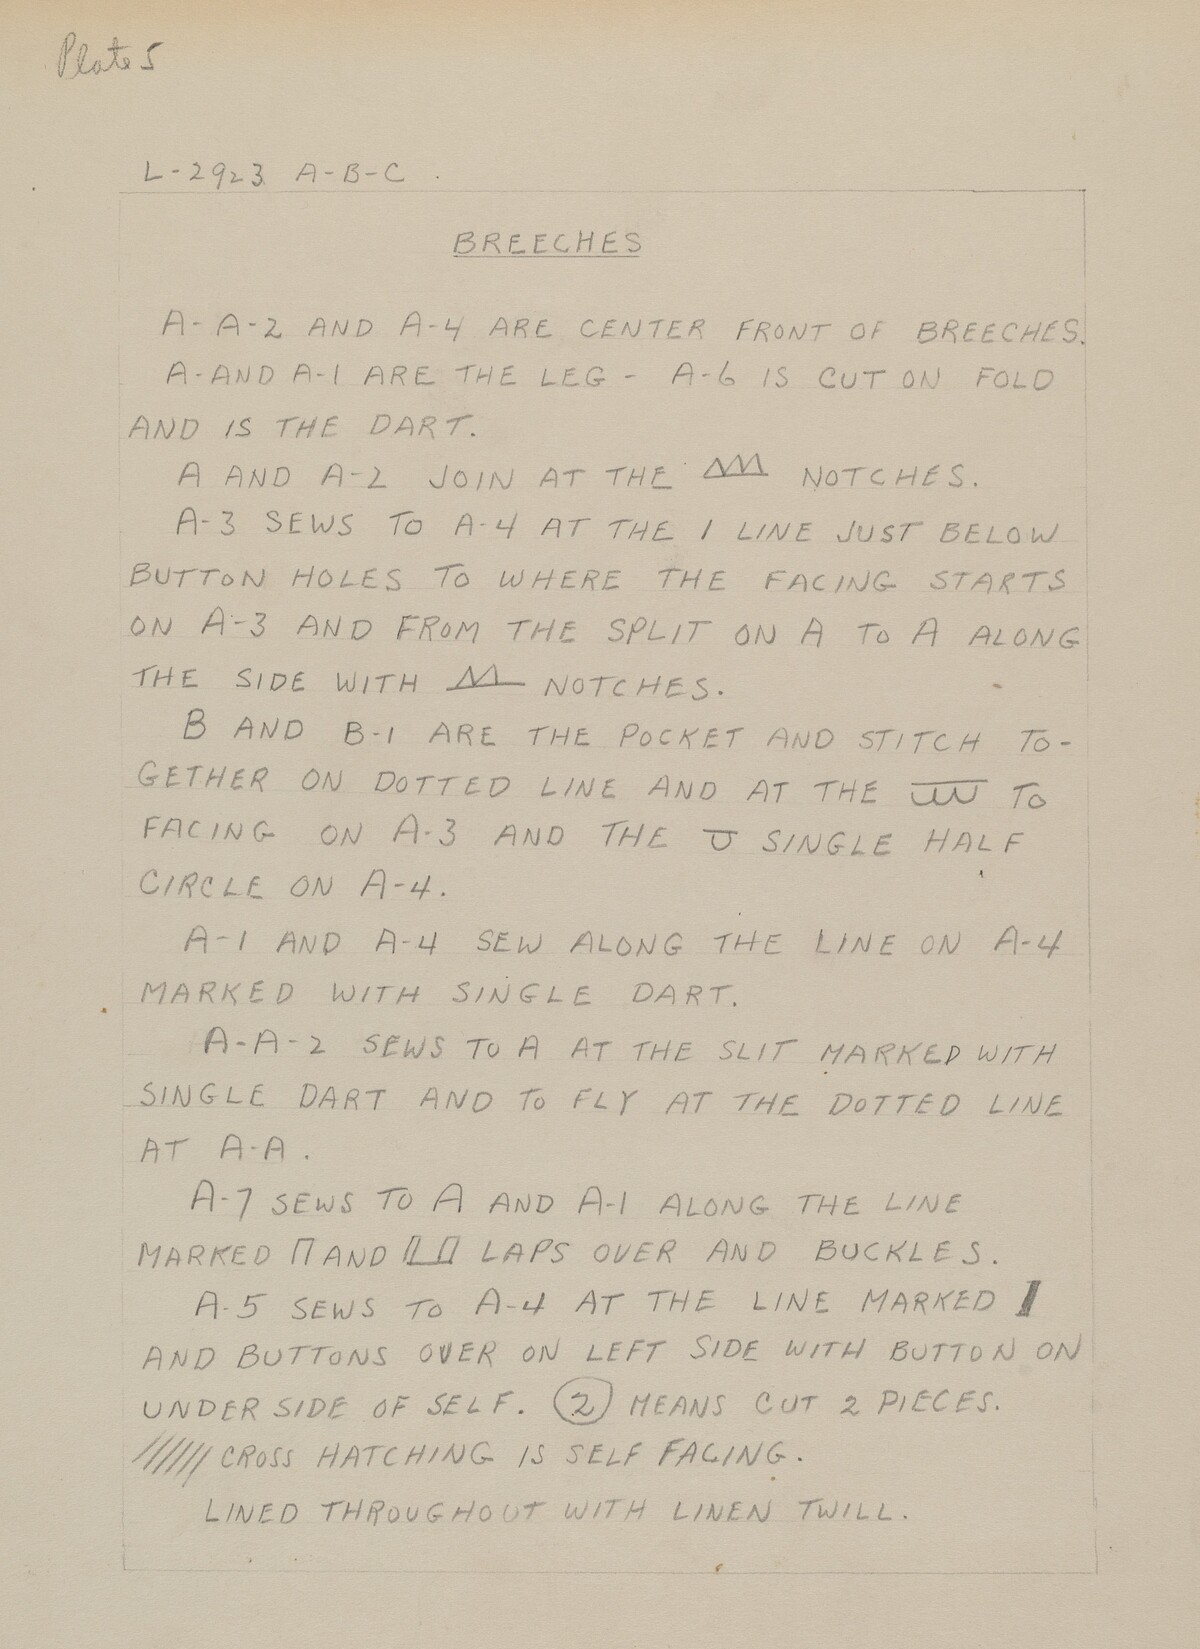 Plate 5
L-2923 A-B-C.
BREECHES
A-A-2 AND A-4 ARE CENTER FRONT OF BREECHES.
A-AND A-1 ARE THE LEG - A-6 IS CUT ON FOLD
AND IS THE DART.
A AND A-2 JOIN AT THE NOTCHES.
A-3 SEWS TO A-4 AT THE 1 LINE JUST BELOW
BUTTON HOLES TO WHERE THE FACING STARTS
ON A-3 AND FROM THE SPLIT ON A TO A ALONG
THE SIDE WITH NOTCHES.
B AND B-1 ARE THE POCKET AND STITCH TO-
GETHER ON DOTTED LINE AND AT THE TO
FACING ON A-3 AND THE SINGLE HALF
CIRCLE ON A-4.
A-1 AND A-4 SEW ALONG THE LINE ON A-4
MARKED WITH SINGLE DART.
A-A-2 SEWS TO A AT THE SLIT MARKED WITH
SINGLE DART AND TO FLY AT THE DOTTED LINE
AT A-A.
A-7 SEWS TO A AND A-1 ALONG THE LINE
MARKED AND LAPS OVER AND BUCKLES.
A-5 SEWS TO A-4 AT THE LINE MARKED
AND BUTTONS OVER ON LEFT SIDE WITH BUTTON ON
UNDER SIDE OF SELF. 2 MEANS CUT 2 PIECES.
////// CROSS HATCHING IS SELF FACING.
LINED THROUGHOUT WITH LINEN TWILL.